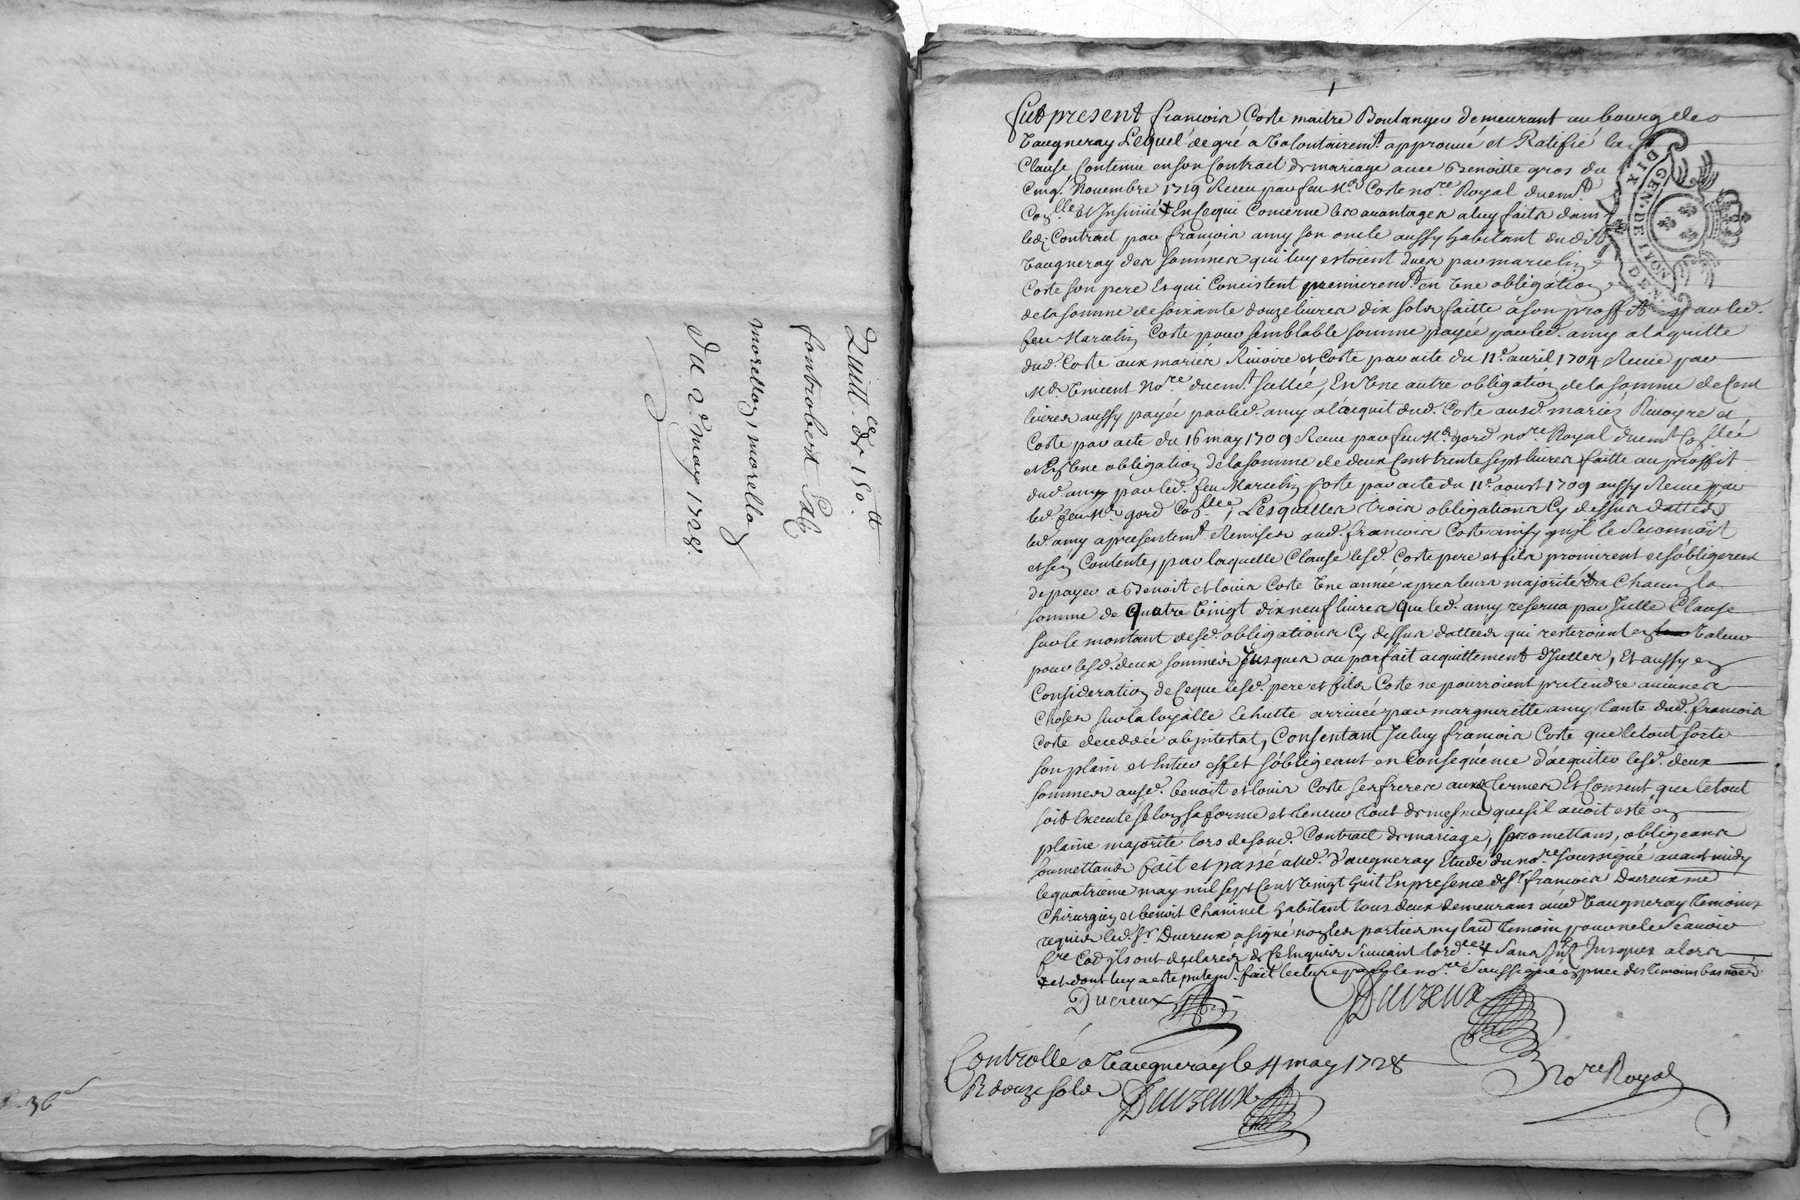 Quitt.ce de 150.tt
fontrobert Praly
morellon, morellon
du 2.e may 1728.
1
Fut present francois Coste maitre Boulanger demeurant au bourg de
Vaugneray Lequel de gré a Volontairem.t approuvé et Ratifié la
Clause Contenue en son Contract de mariage avec Benoitte gros du
Cinq.e Novembre 1719 Receu par feu M.e Coste no.re Royal duem.t
Co.llé et Insinué + En ce qui Concerne les avantages a luy faits dans
led. Contract par francois amy son oncle aussy habitant dudit
Vaugneray des sommes qui luy estoient dues par marcelin
Coste son pere Et qui Concistent premierem.t en Une obligation
de la somme de soixante douze livres dix sols faitte a son proffit par led.
feu Marcelin Coste pour semblable somme payée par led. amy a laquitte
dud. Coste aux mariés Rivoire et Coste par acte du 11.e avril 1704 Receu par
M.e Vincent No.re duem.t scellé, En Une autre obligation de la somme de Cent
livres aussy payée par led. amy a l'acquit dud. Coste ausd. mariés Rivoyre et
Coste par acte du 16 may 1709 Receu par feu M.e gord no.re Royal duem.t Co.llé
et En Une obligation de la somme de deux Cent trente sept livres faitte au proffit
dud. amy par led. feu Marcelin Coste par acte du 11.e aoust 1709 aussy Receu par
led. feu M.e gord Co.llée, Lesquelles trois obligations Cy dessus dattées
led. amy a presentem.t Remises aud. francois Coste ainsy qu'il le Reconnoit
et s'en Contente, par laquelle Clause lesd. Coste pere et fils promirent et s'obligerent
de payer a Benoit et louis Coste Une année apres leurs majorités a Chacun la
somme de quatre Vingt dix neuf livres que led. amy reserva par Icelle Clause
sur le montant desd. obligations Cy dessus dattées qui resteroient en Valeur
pour lesd. deux sommes Jusques au parfait acquittement d'Icelles, Et aussy en
Consideration de Ceque lesd. pere et fils Coste ne pourroient pretendre aucunes
Choses sur la loyalle Echutte arrivée par margueritte amy tante dud. francois
Coste decedée abintestat, Consentant Iceluy francois Coste que le tout sorte
son plain et Entier effet s'obligeant en Consequence d'acquiter lesd. deux
sommes ausd. benoit et louis Coste ses freres aux termes Et Consent que le tout
soit Executé selon sa forme et teneur tout de mesme que sil avoit esté en
plaine majorité lors de sond. Contract de mariage, promettans, obligeans
soumettans fait et passé aud. Vaugneray Etude du no.re soussigné avant midy
le quatrieme may mil sept Cent Vingt huit En presence de S.r francois Ducreux me
Chirurgien et benoit Chaninel habitant tous deux demeurans aud. Vaugneray temoins
requis led. S.r Ducreux a signé non les parties ny laud. temoin pour ne le scavoir
f.re Co.e ils ont declarés de ce Enquis suivant lord.ce + sans s'en Jusques alors
+ et dont luy a esté presentem.t fait lecture par le no.re soussigné en p.nce des temoins bas només
Ducreux
Duizeux
No.re Royal
Controllé a Vaugneray le 4 may 1728
R douze sols
Duizeux